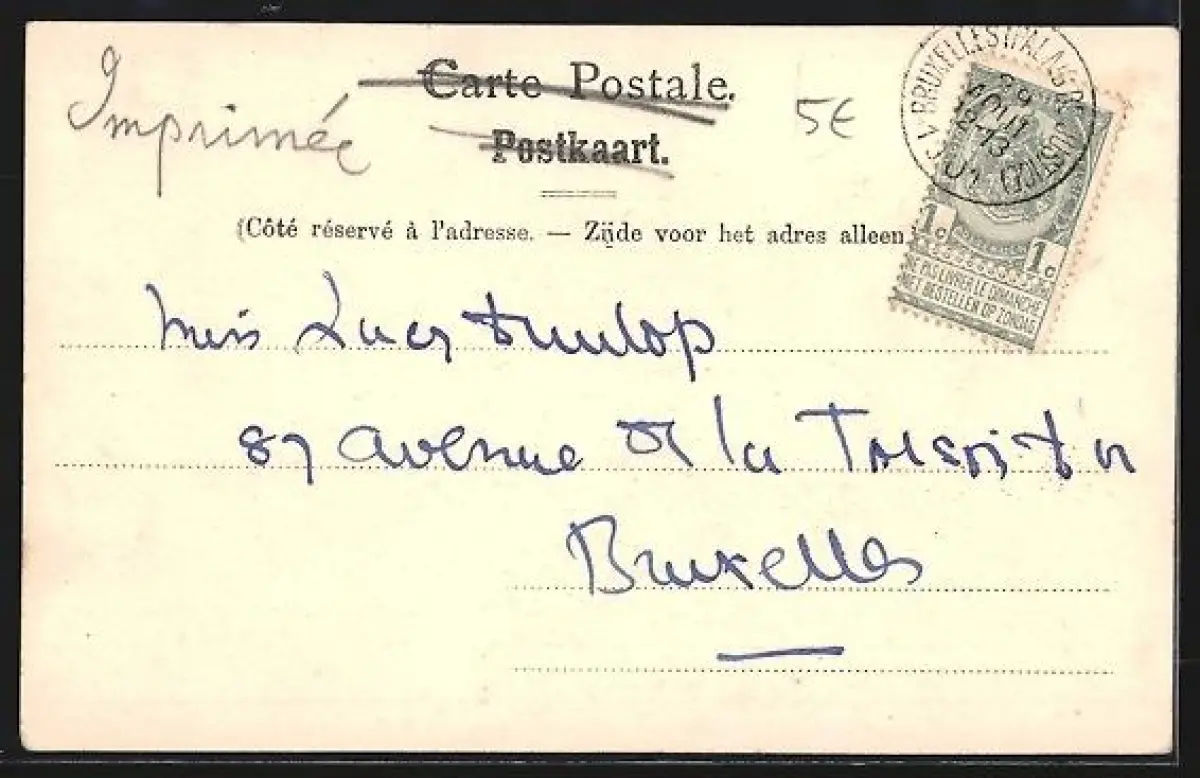 Imprimée
Carte Postale.
Postkaart.
5€
(Côté réservé à l'adresse. — Zijde voor het adres alleen.)
BRUXELLES
29
AOUT
12-13
01
1c 1c
NE PAS LIVRER LE DIMANCHE
NIET BESTELLEN OP ZONDAG
Miss Lucy Dunlop
87 avenue de la Toison d'or
Bruxelles